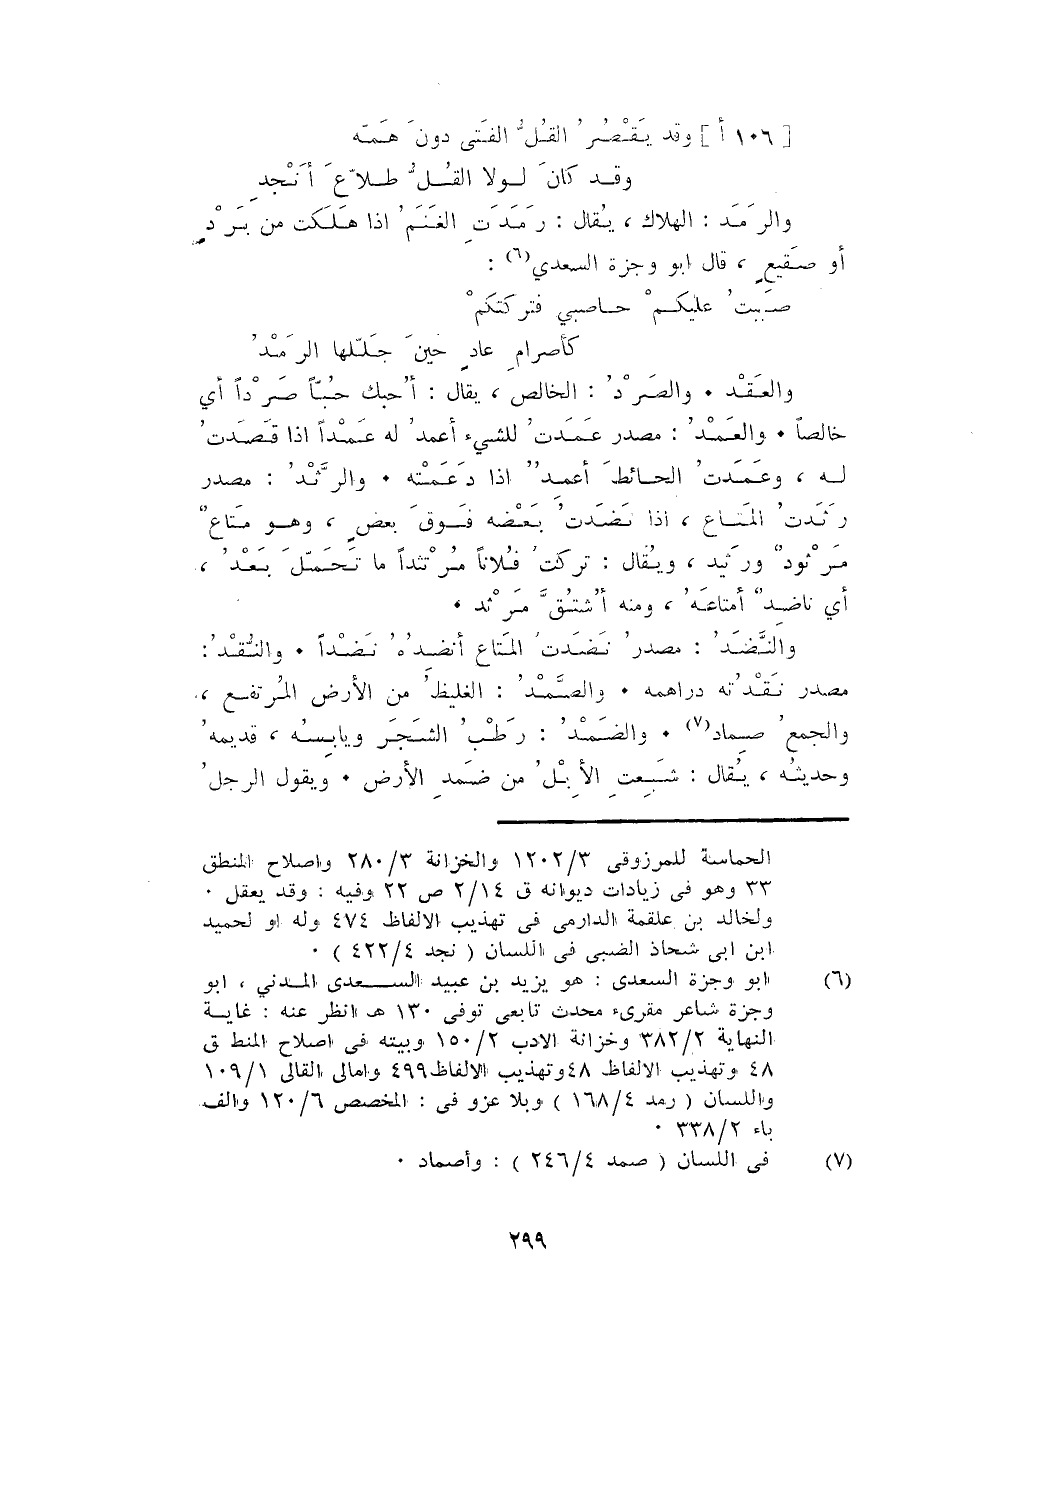 [ ١٠٦ أ ] وقد يَقْصُرُ القُلُّ الفَتى دونَ هَمّه
وقد كانَ لولا القُلُّ طلاّعَ أَنْجُدِ
والرَّمَد : الهلاك ، يُقال : رَمَدَتِ الغَنَمُ اذا هَلَكت من بَرْدٍ
أو صَقيعٍ ، قال ابو وجزة السعدي(٦) :
صَبَبتُ عليكمْ حاصبي فتركتكمْ
كأصرامِ عادٍ حينَ جلّلها الرمْدُ
والعَقْد . والصَرْدُ : الخالص ، يقال : أُحبك حُبّاً صَرْداً أي
خالصاً . والعَمْدُ : مصدر عَمَدتُ للشيء أعمدُ له عَمْداً اذا قَصَدتُ
له ، وعَمَدتُ الحائطَ أعمدُ اذا دَعَمْته . والرَّثْدُ : مصدر
رَثَدتُ المَتاعَ ، اذا نَضَدتُ بَعْضَه فَوقَ بعضٍ ، وهو مَتاعٌ
مَرْثودٌ ورَثيد ، ويُقال : تركتُ فُلاناً مُرْتثداً ما تَحَمّلَ بَعْدُ ،
أي ناضدٌ أمتاعَهُ ، ومنه أُشتُقَّ مَرْثد .
والنَّضَدُ : مصدرُ نَضَدتُ المَتاعَ أنضِدُهُ نَضْداً . والنَّقْدُ :
مصدر نَقَدْتُه دراهمه . والصَّمْدُ : الغليظُ من الأرض المُرتفع ،
والجمعُ صِماد(٧) . والضَمْدُ : رَطْبُ الشَجَرِ ويابسُه ، قديمهُ
وحديثُه ، يُقال : شَبعتِ الأِبْلُ من ضَمدِ الأرض . ويقول الرجلُ
الحماسة للمرزوقى ١٢٠٢/٣ والخزانة ٢٨٠/٣ واصلاح المنطق
٣٣ وهو فى زيادات ديوانه ق ٢/١٤ ص ٢٢ وفيه : وقد يعقل .
ولخالد بن علقمة الدارمى فى تهذيب الالفاظ ٤٧٤ وله او لحميد
ابن ابى شحاذ الضبى فى اللسان ( نجد ٤٢٢/٤ ) .
(٦) ابو وجزة السعدى : هو يزيد بن عبيد السعدى المدني ، ابو
وجزة شاعر مقرىء محدث تابعى توفى ١٣٠ هـ انظر عنه : غاية
النهاية ٣٨٢/٢ وخزانة الادب ١٥٠/٢ وبيته فى اصلاح المنط ق
٤٨ وتهذيب الالفاظ ٤٨وتهذيب الالفاظ٤٩٩ وامالى القالى ١٠٩/١
واللسان ( رمد ١٦٨/٤ ) وبلا عزو فى : المخصص ١٢٠/٦ والف
باء ٣٣٨/٢ .
(٧) فى اللسان ( صمد ٢٤٦/٤ ) : وأصماد .
٢٩٩